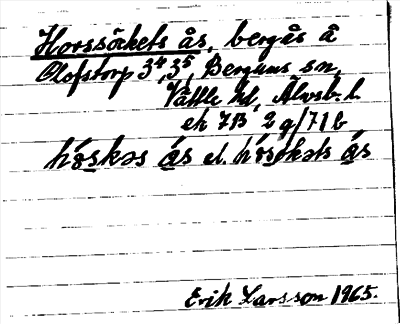 Horssöckets ås, bergås å
Olofstorp 3⁴, 3⁵, Bergums sn,
Vättle hd, Älvsb. l.
ek 7B 2g/71b
hòskəs ås el. hòsøkəts ås
Erik Larsson 1965.